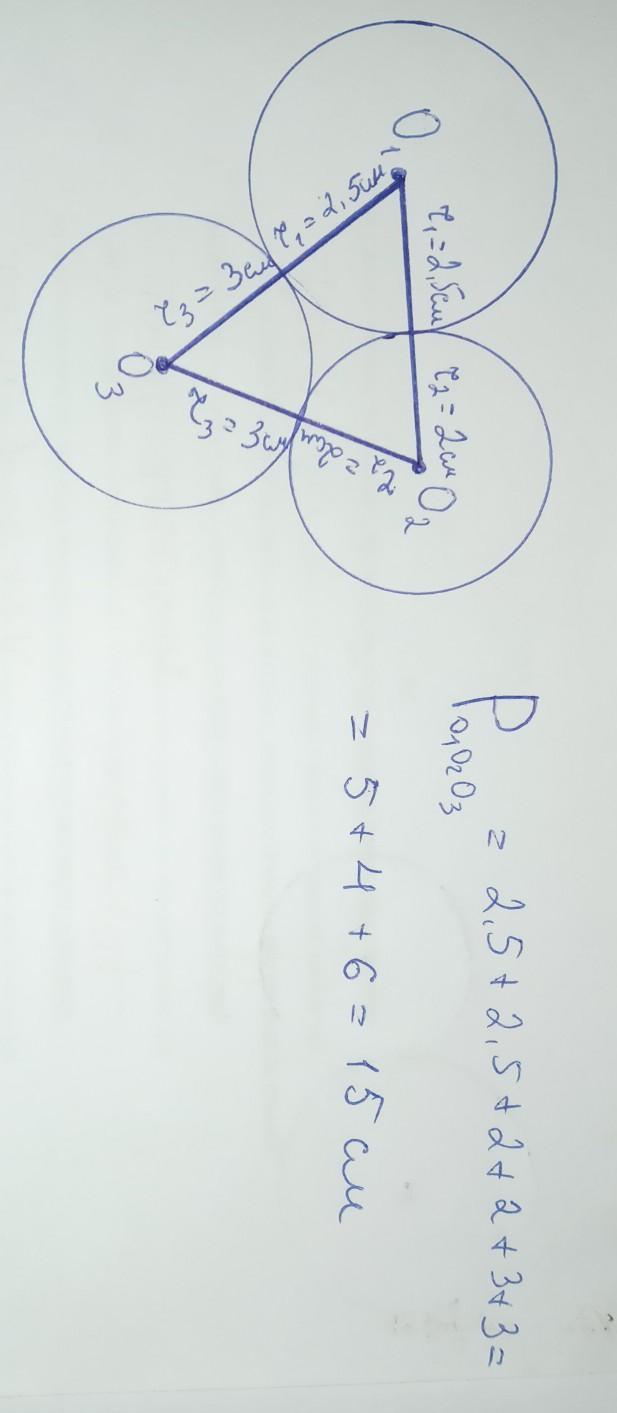 O₁
r₁=2,5см
r₂=2см
O₂
r₁=2,5см
r₃=3см
r₂=2см
r₃=3см
O₃
P O₁O₂O₃ = 2,5+2,5+2+2+3+3=
= 5+4+6=15 см